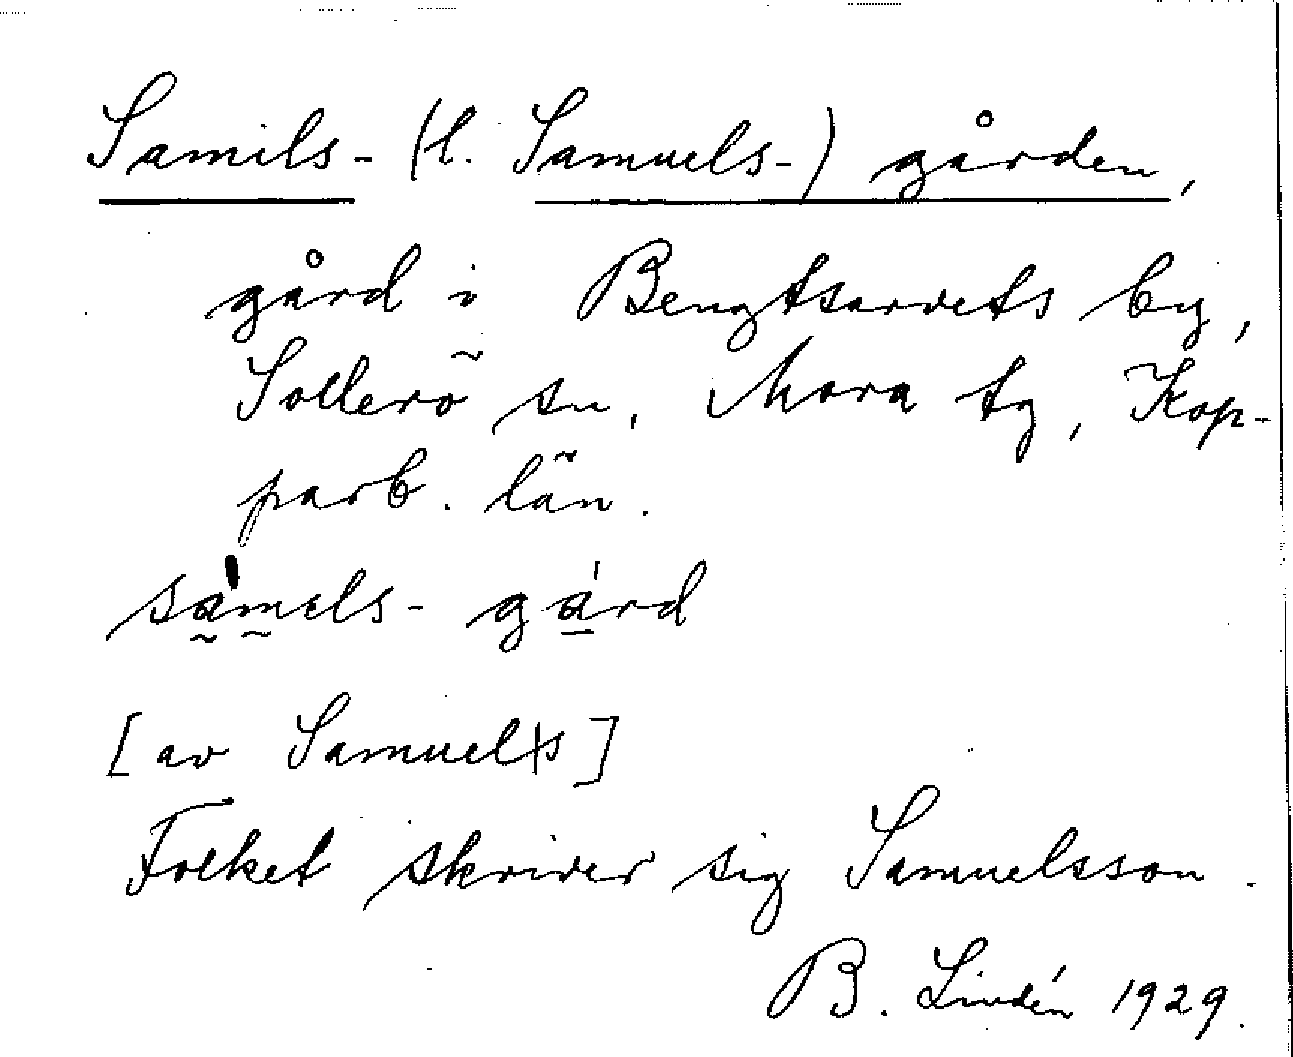 Samils- (l. Samuels-) gården,
gård i Bengtsarvets by,
Sollerö sn, Mora tg, Kop-
parb. län.
samels-gård
[av Samuels]
Folket skriver sig Samuelsson.
B. Lindén 1929.